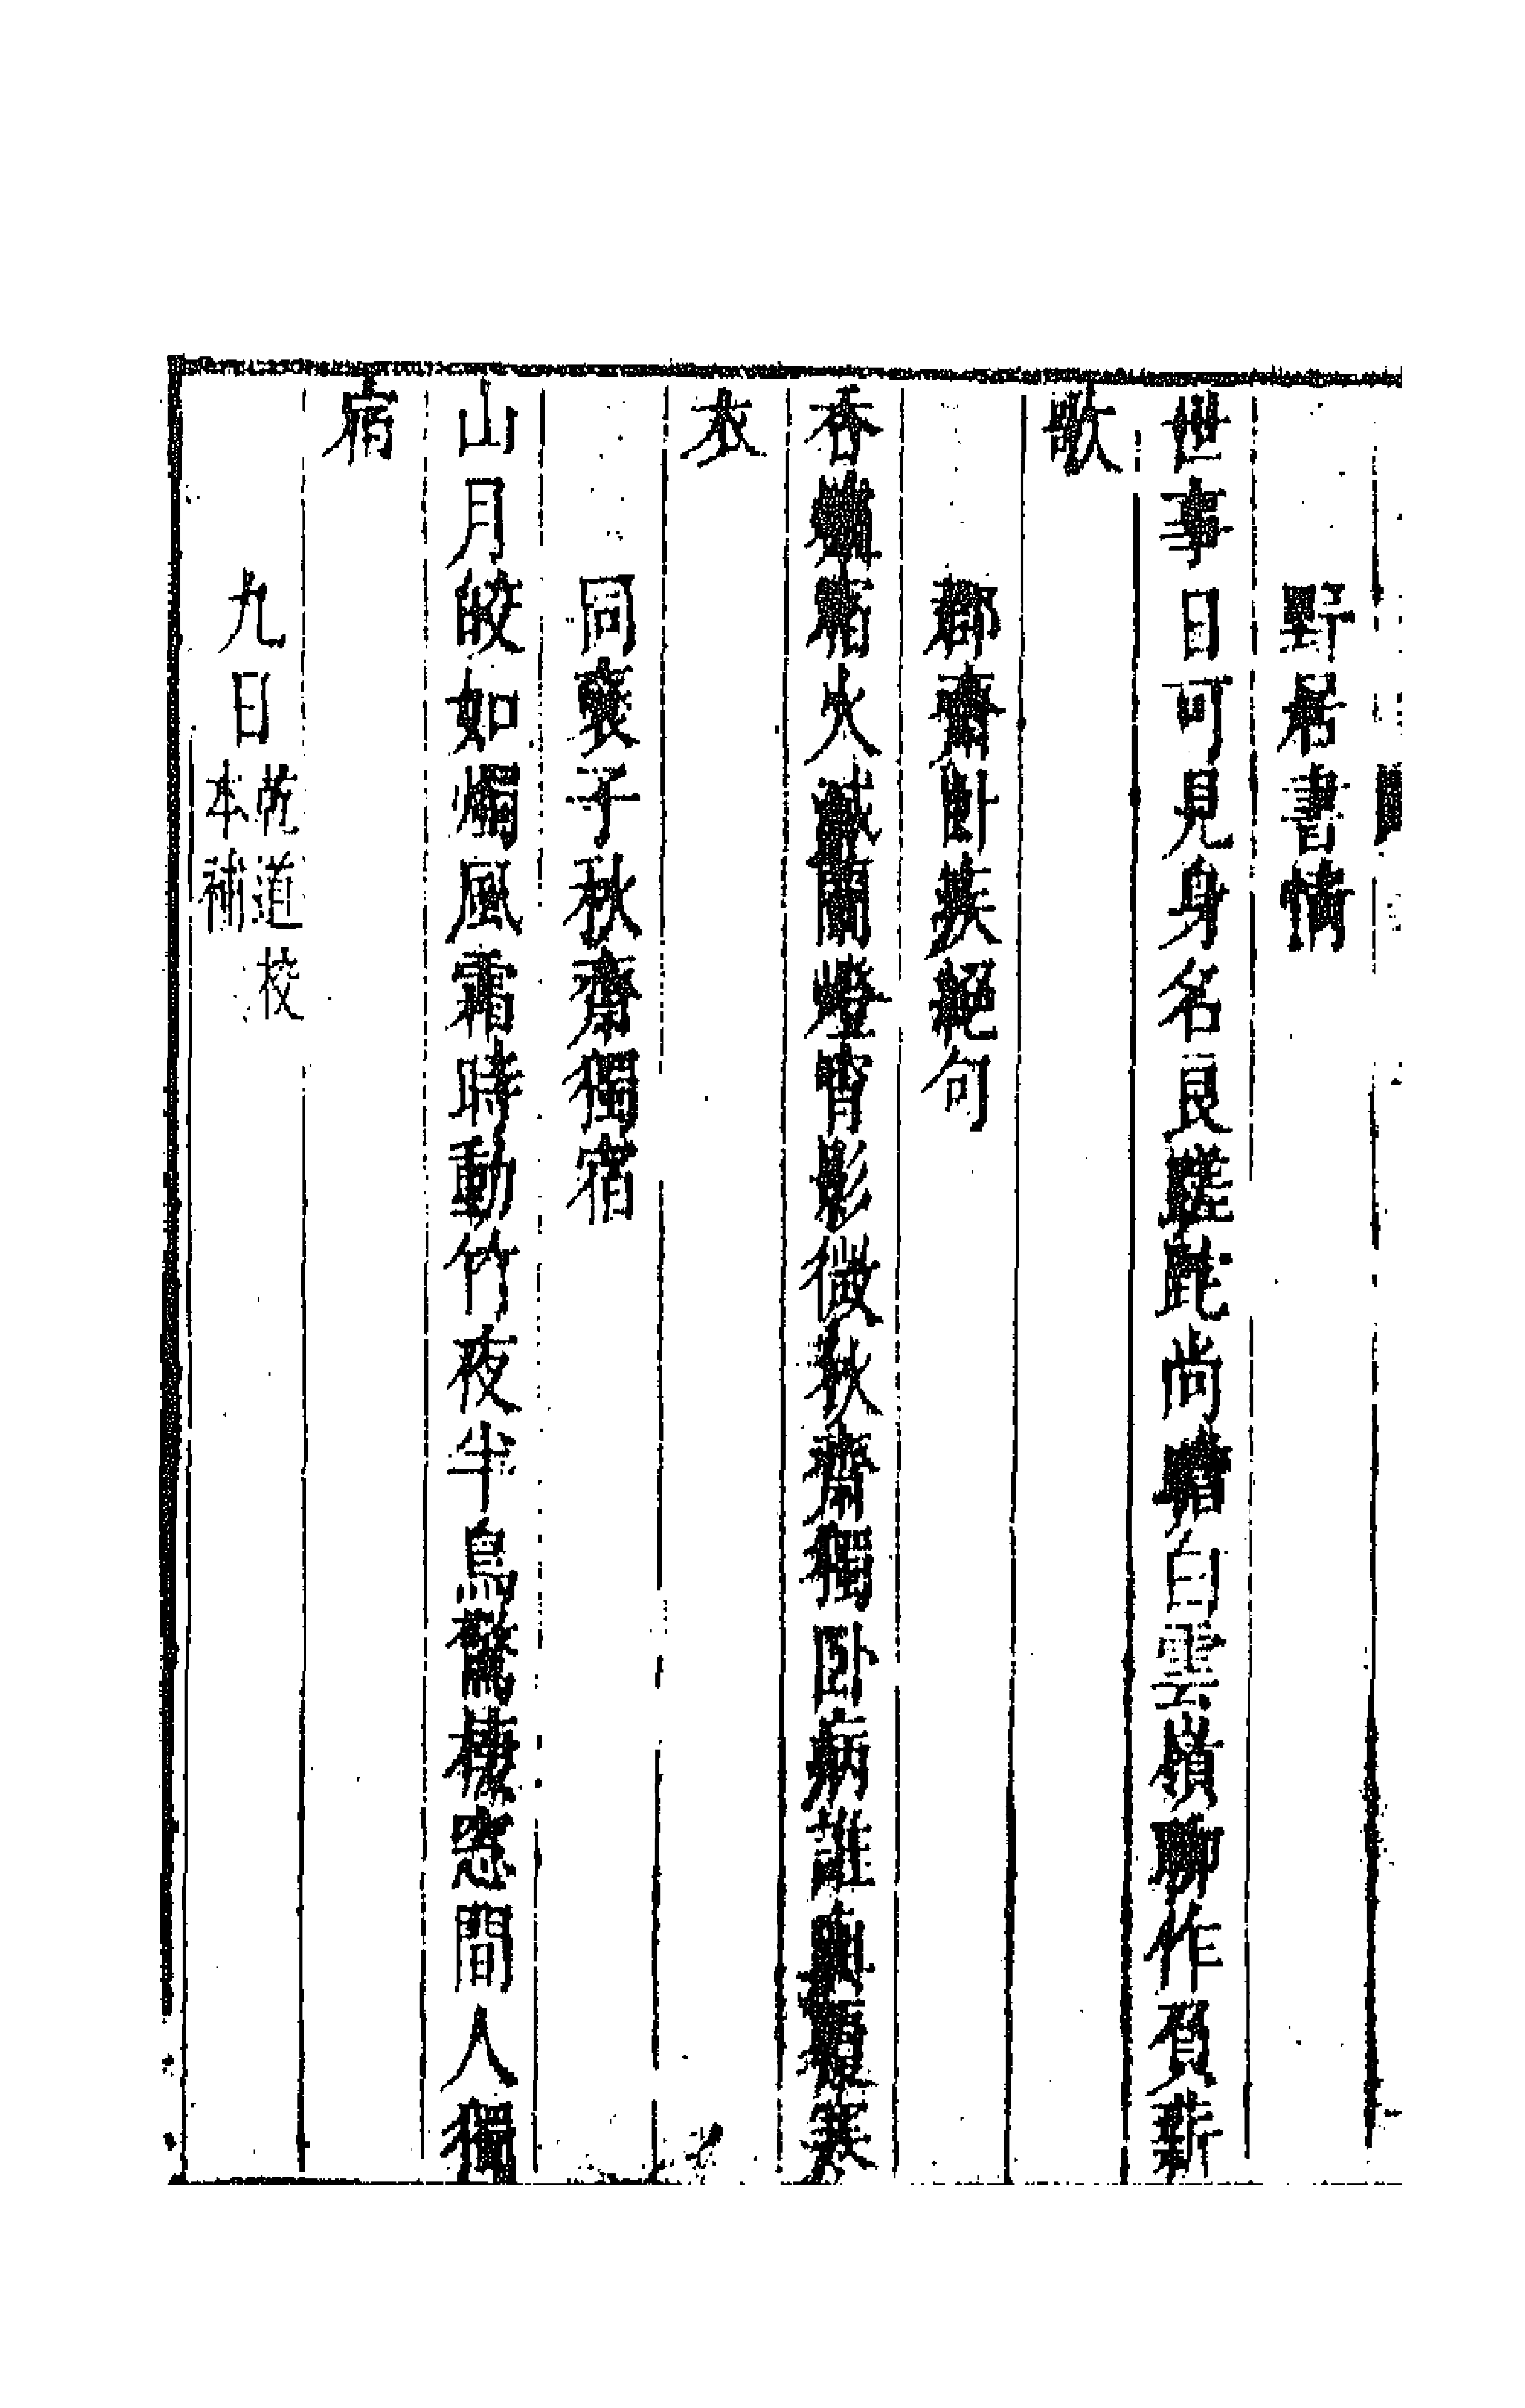 野居書情
世事日可見身名良蹉跎尚瞻白雲嶺聊作負薪
歌
郡齋卧疾絕句
香爐宿火滅蘭燈宵影微秋齋獨卧病誰與覆寒
衣
同褒子秋齋獨宿
山月皎如燭風霜時動竹夜半鳥驚棲窓間人獨
宿
九日乾道校
本補